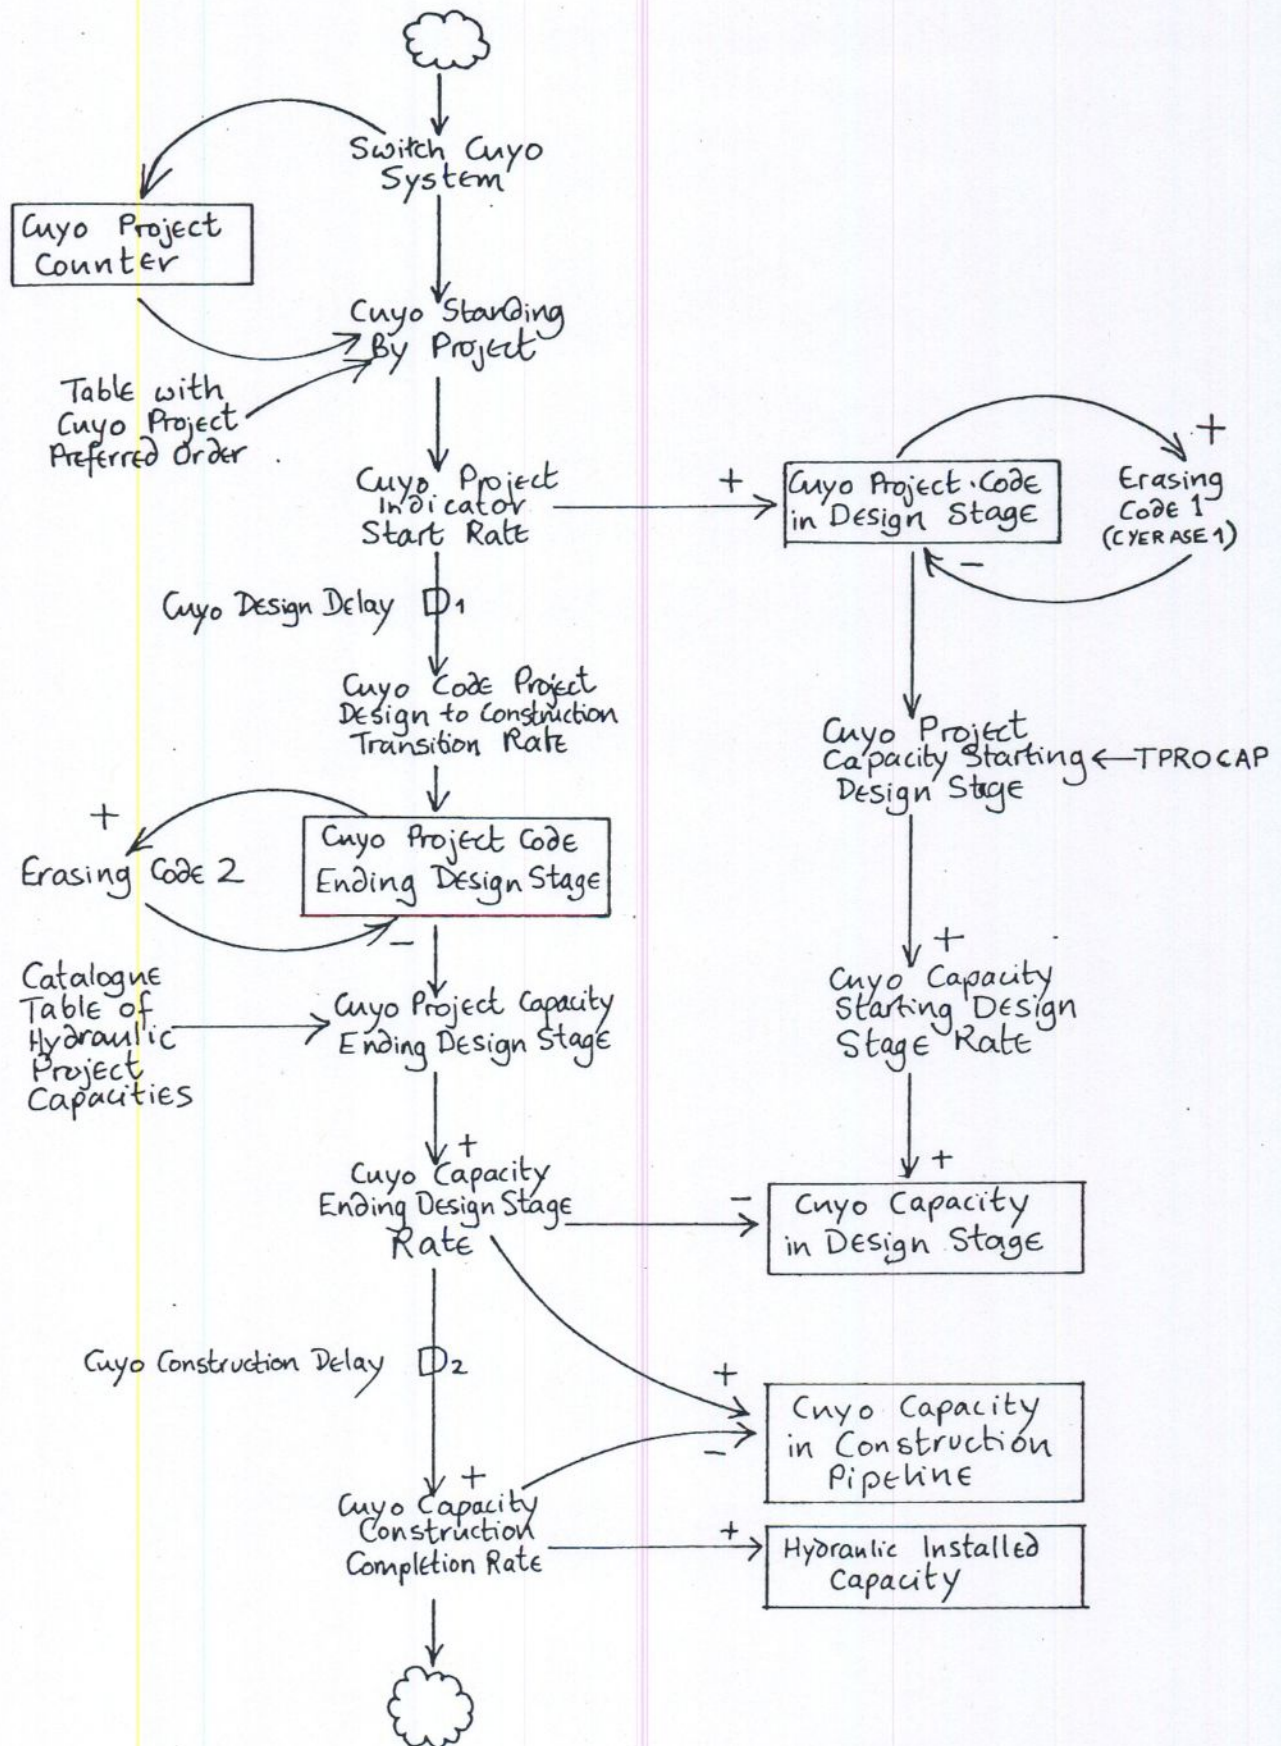 Switch Cuyo
System
Cuyo Project
Counter
Cuyo Standing
By Project
Table with
Cuyo Project
Preferred Order
Cuyo Project
Indicator
Start Rate
+
Cuyo Project Code
in Design Stage
+
Erasing
Code 1
(CYERASE1)
-
Cuyo Design Delay D1
Cuyo Code Project
Design to Construction
Transition Rate
Cuyo Project
Capacity Starting
Design Stage
TPROCAP
+
Erasing Code 2
Cuyo Project Code
Ending Design Stage
-
Catalogue
Table of
Hydraulic
Project
Capacities
Cuyo Project Capacity
Ending Design Stage
+
Cuyo Capacity
Starting Design
Stage Rate
+
Cuyo Capacity
Ending Design Stage
Rate
-
+
Cuyo Capacity
in Design Stage
Cuyo Construction Delay D2
+
-
Cuyo Capacity
in Construction
Pipeline
+
Cuyo Capacity
Construction
Completion Rate
+
Hydraulic Installed
Capacity